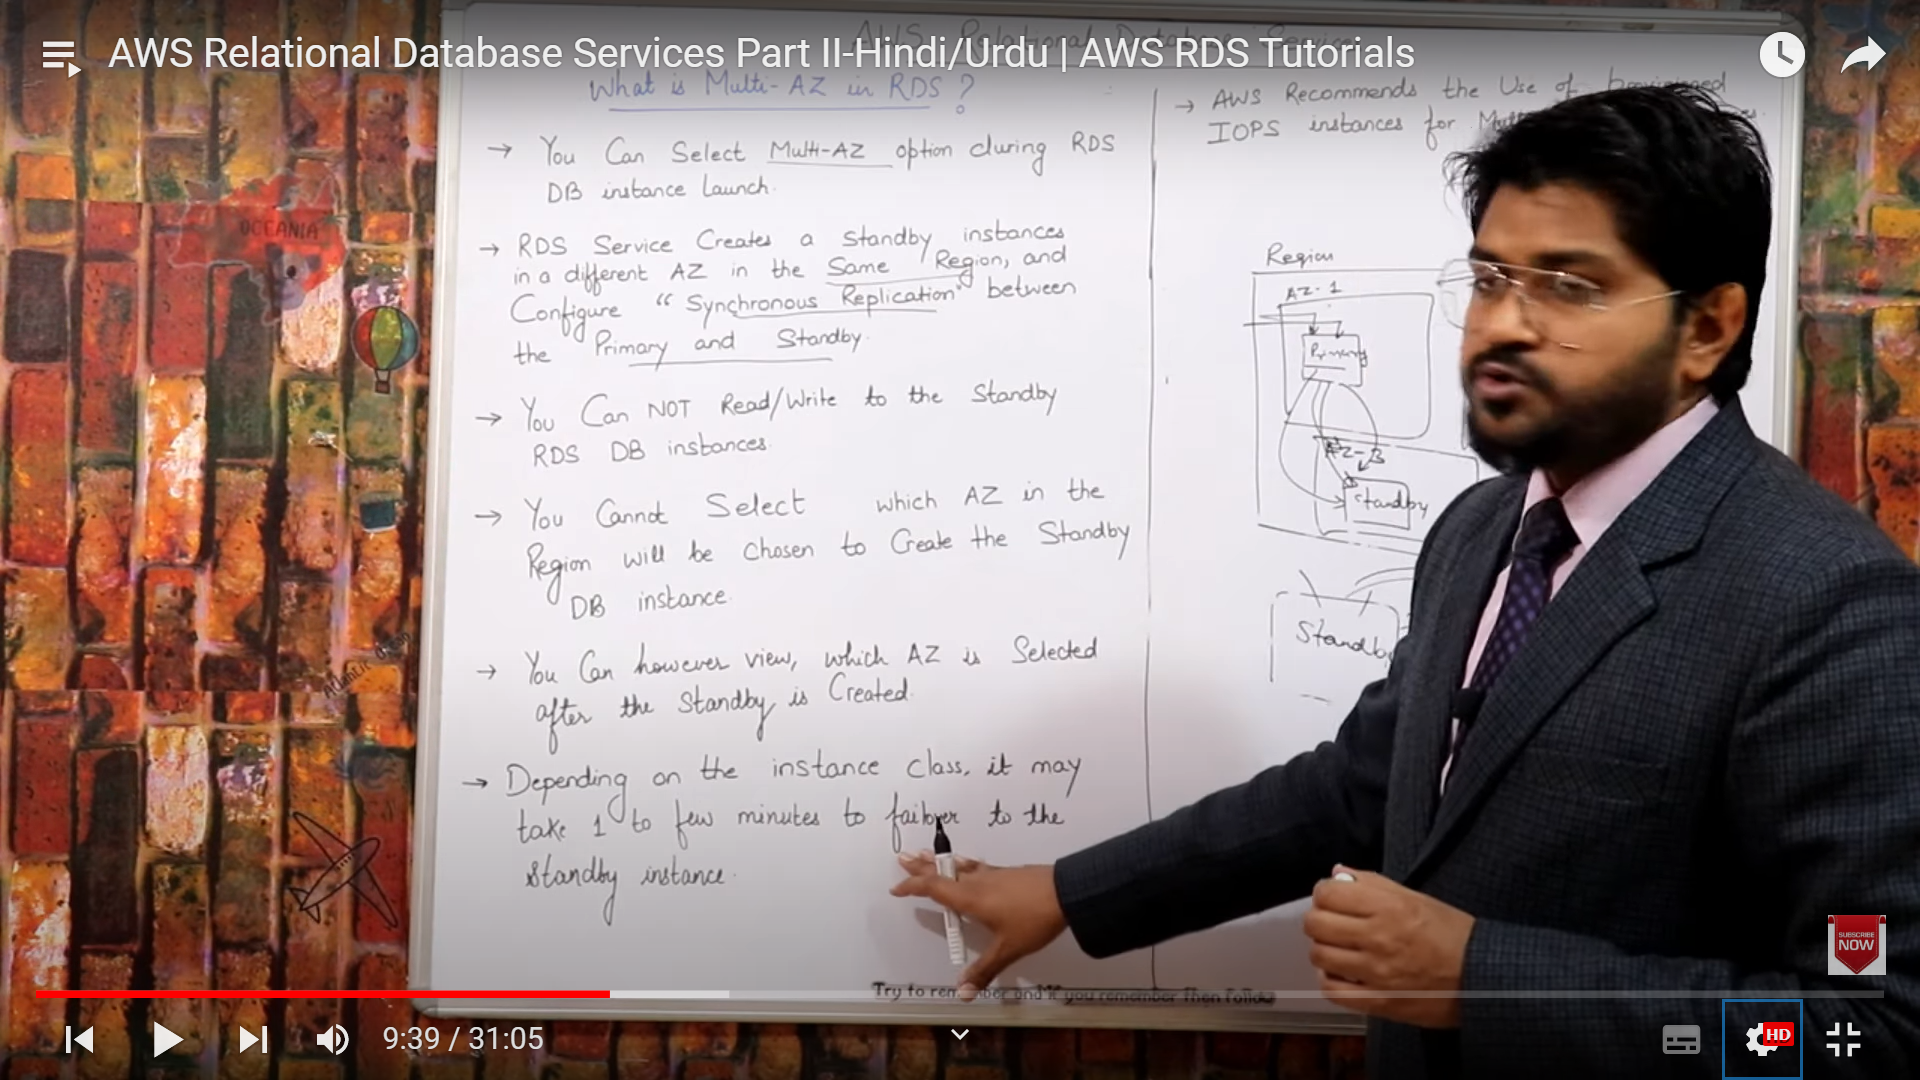 AWS Relational Database Services Part II-Hindi/Urdu | AWS RDS Tutorials
AWS Relational Database
What is Multi-AZ in RDS?
→ You Can Select Multi-AZ option during RDS
DB instance Launch.
→ RDS Service Creates a Standby instances
in a different AZ in the Same Region, and
Configure "Synchronous Replication" between
the Primary and Standby.
→ You Can NOT Read/Write to the Standby
RDS DB instances.
→ You Cannot Select which AZ in the
Region will be Chosen to Create the Standby
DB instance.
→ You Can however view, which AZ is Selected
after the Standby is Created.
→ Depending on the instance class, it may
take 1 to few minutes to failover to the
Standby instance.
→ AWS Recommends the Use of Provisioned
IOPS instances for
Region
AZ-1
Primary
Standby
Standby
OCEANIA
Atlantic
Try to remember and if you remember Then
SUBSCRIBE
NOW
9:39 / 31:05
HD